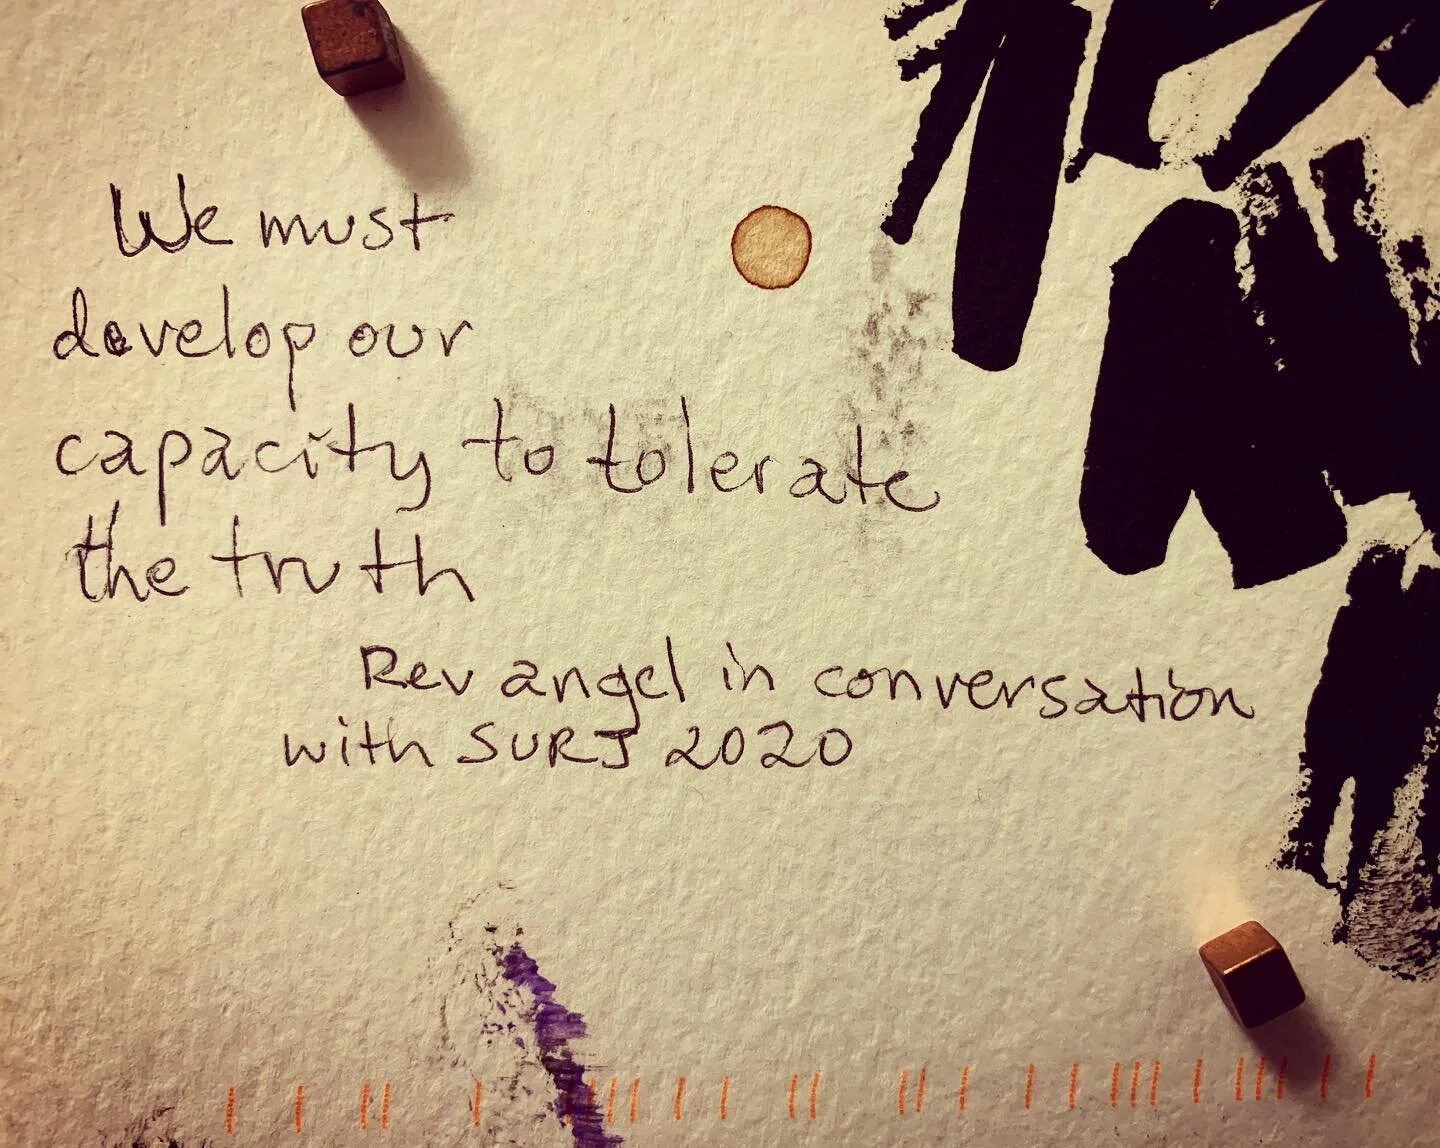 We must
develop our
capacity to tolerate
the truth
Rev angel in conversation
with SURJ 2020